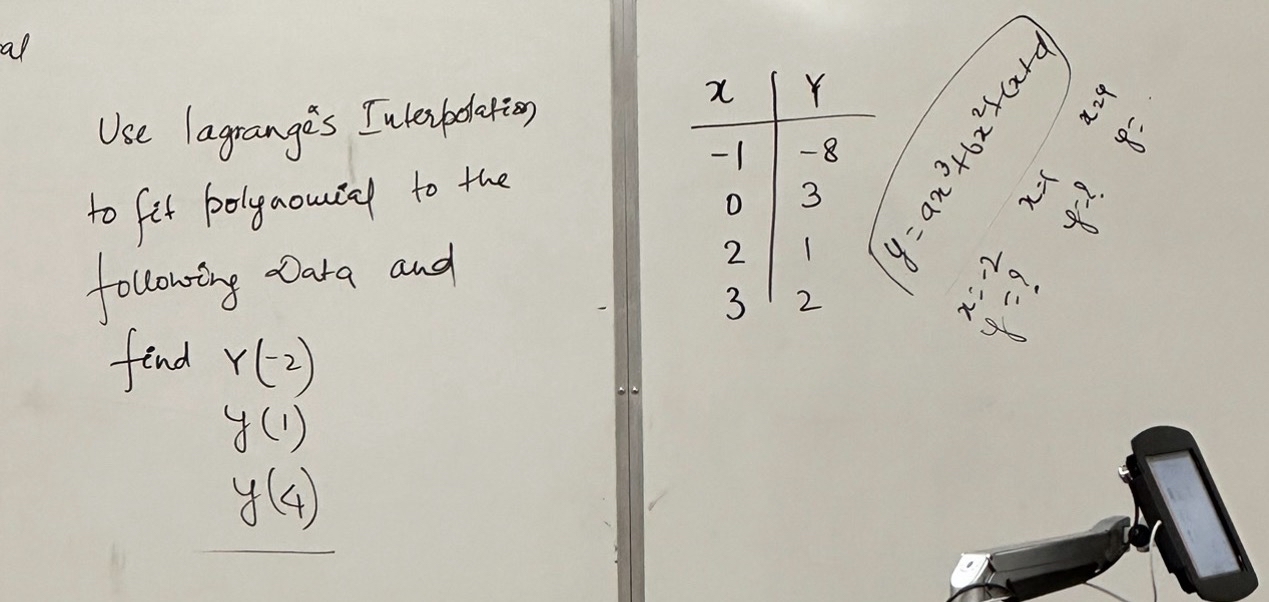 al
Use lagrange's Interpolation
to fit polynomial to the
following Data and
find Y(-2)
y(1)
y(4)
x Y
-1 -8
0 3
2 1
3 2
y = ax³+bx²+cx+d
x=-2
y=?
x=1
y=?
x=4
y=